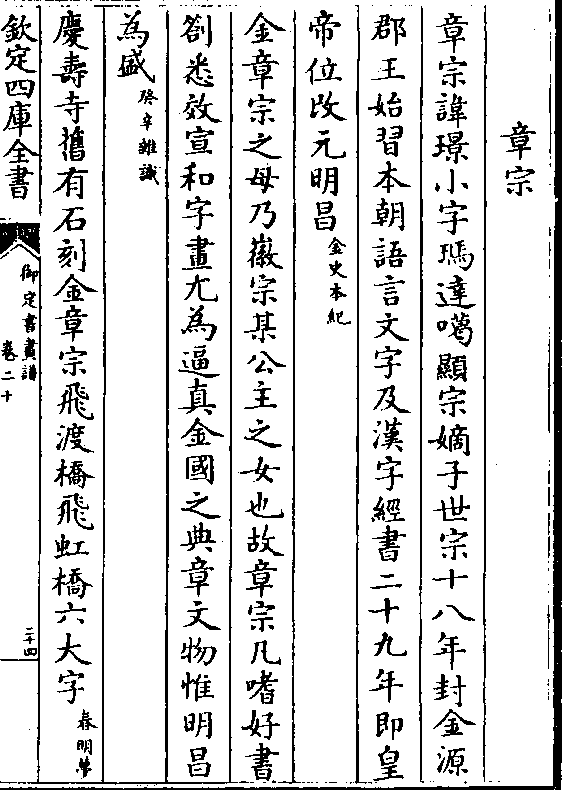 章宗
章宗諱璟小字瑪達噶顯宗嫡子世宗十八年封金源
郡王始習本朝語言文字及漢字經書二十九年即皇
帝位改元明昌金史本紀
金章宗之母乃徽宗某公主之女也故章宗凡嗜好書
劄悉效宣和字畫尤為逼真金國之典章文物惟明昌
為盛癸辛雜識
慶壽寺舊有石刻金章宗飛渡橋飛虹橋六大字春明夢
欽定四庫全書
御定書畫譜
卷二十
二十四